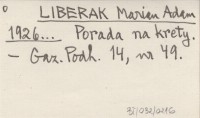 LIBERAK Marian Adam
1926... Porada na krety.
– Gaz. Podh. 14, nr 49.